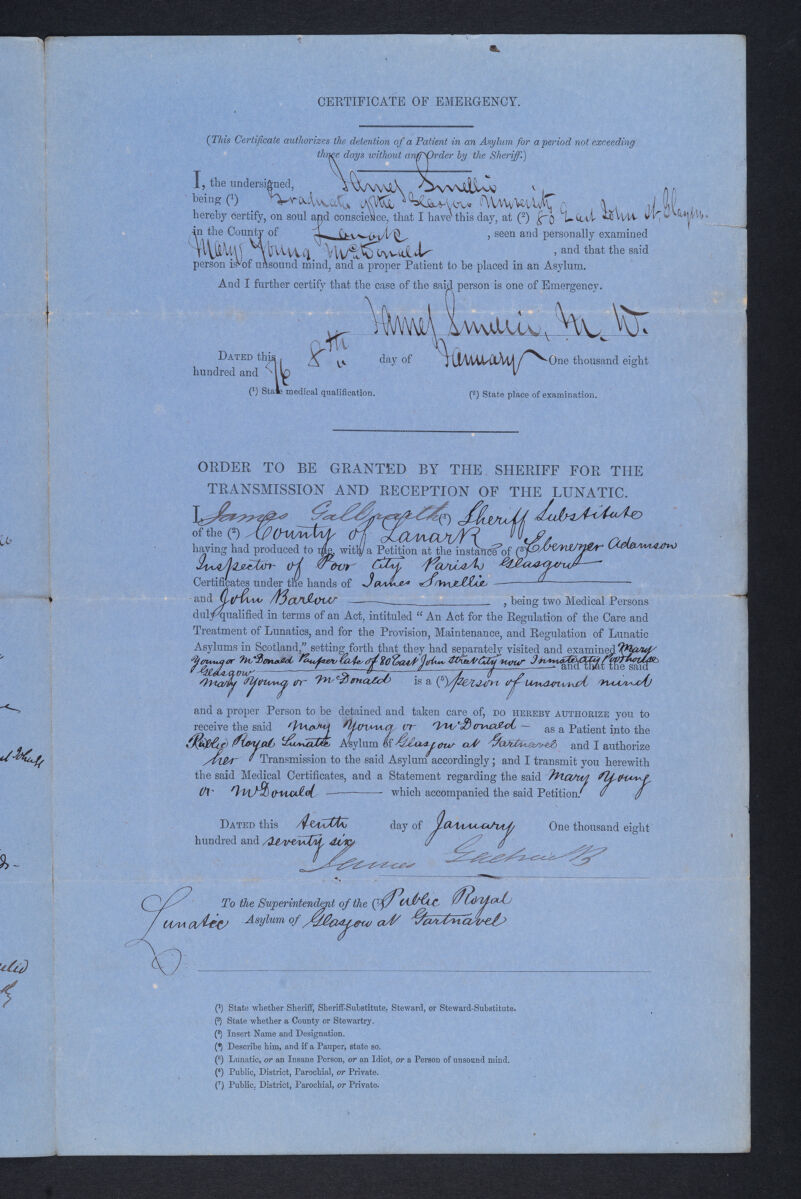 CERTIFICATE OF EMERGENCY.
(This Certificate authorizes the detention of a Patient in an Asylum for a period not exceeding
three days without any Order by the Sheriff.)
I, the undersigned, James Smellie
being (1) Graduate of the Glasgow University
hereby certify, on soul and conscience, that I have this day, at (2) 80 East John St. Glasgow.
in the County of Lanark , seen and personally examined
Mary Young McDonald , and that the said
person is of unsound mind, and a proper Patient to be placed in an Asylum.
And I further certify that the case of the said person is one of Emergency.
James Smellie, M.D.
DATED this 8th day of January One thousand eight
hundred and 76
(1) State medical qualification. (2) State place of examination.
ORDER TO BE GRANTED BY THE SHERIFF FOR THE
TRANSMISSION AND RECEPTION OF THE LUNATIC.
I James Galbraith (1) Sheriff Substitute
of the (2) County of Lanark
having had produced to me, with a Petition at the instance of (3) Ebenezer Adamson
Inspector of Poor City Parish Glasgow
Certificates under the hands of James Smellie
and John Barlow , being two Medical Persons
duly qualified in terms of an Act, intituled "An Act for the Regulation of the Care and
Treatment of Lunatics, and for the Provision, Maintenance, and Regulation of Lunatic
Asylums in Scotland," setting forth that they had separately visited and examined Mary
Young or McDonald Pauper late of 80 East John Street City now Inmate City Poorhouse
Glasgow and that the said
Mary Young or McDonald is a (5) person of unsound mind
and a proper Person to be detained and taken care of, DO HEREBY AUTHORIZE you to
receive the said Mary Young or McDonald - as a Patient into the
Public Royal Lunatic Asylum of Glasgow at Gartnavel and I authorize
her Transmission to the said Asylum accordingly; and I transmit you herewith
the said Medical Certificates, and a Statement regarding the said Mary Young
or McDonald which accompanied the said Petition.
DATED this tenth day of January One thousand eight
hundred and seventy six
James Galbraith
To the Superintendent of the (7) Public Royal
Lunatic Asylum of Glasgow at Gartnavel
(1) State whether Sheriff, Sheriff-Substitute, Steward, or Steward-Substitute.
(2) State whether a County or Stewartry.
(3) Insert Name and Designation.
(4) Describe him, and if a Pauper, state so.
(5) Lunatic, or an Insane Person, or an Idiot, or a Person of unsound mind.
(6) Public, District, Parochial, or Private.
(7) Public, District, Parochial, or Private.